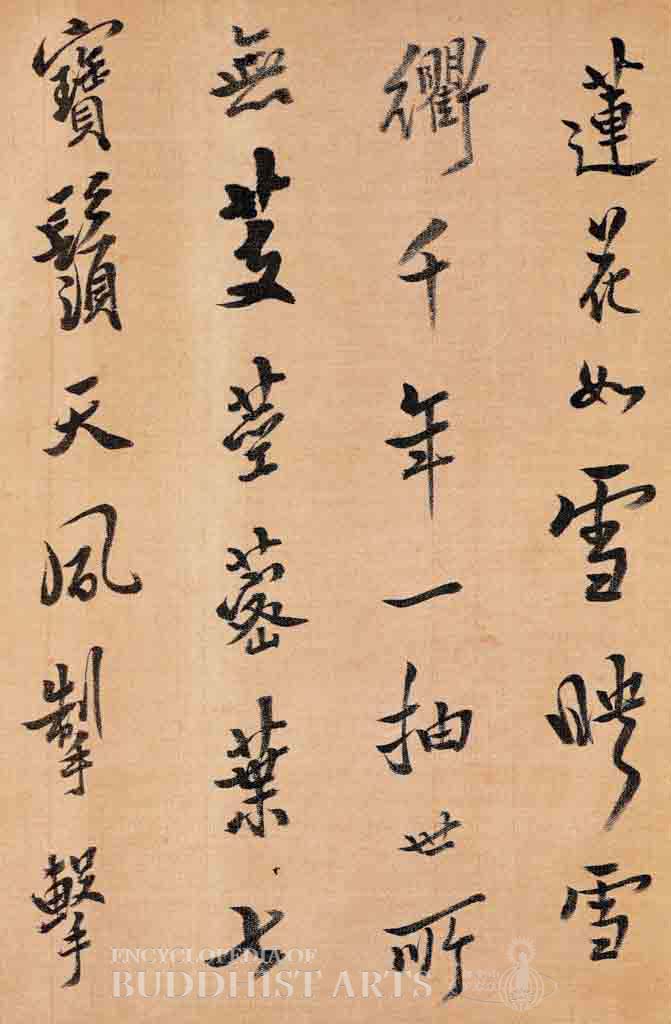 蓮花如雪映雪
衢千年一抽世所
無芰莖蔤葉
寶鬚天風掣擊
ENCYCLOPEDIA OF
BUDDHIST ARTS